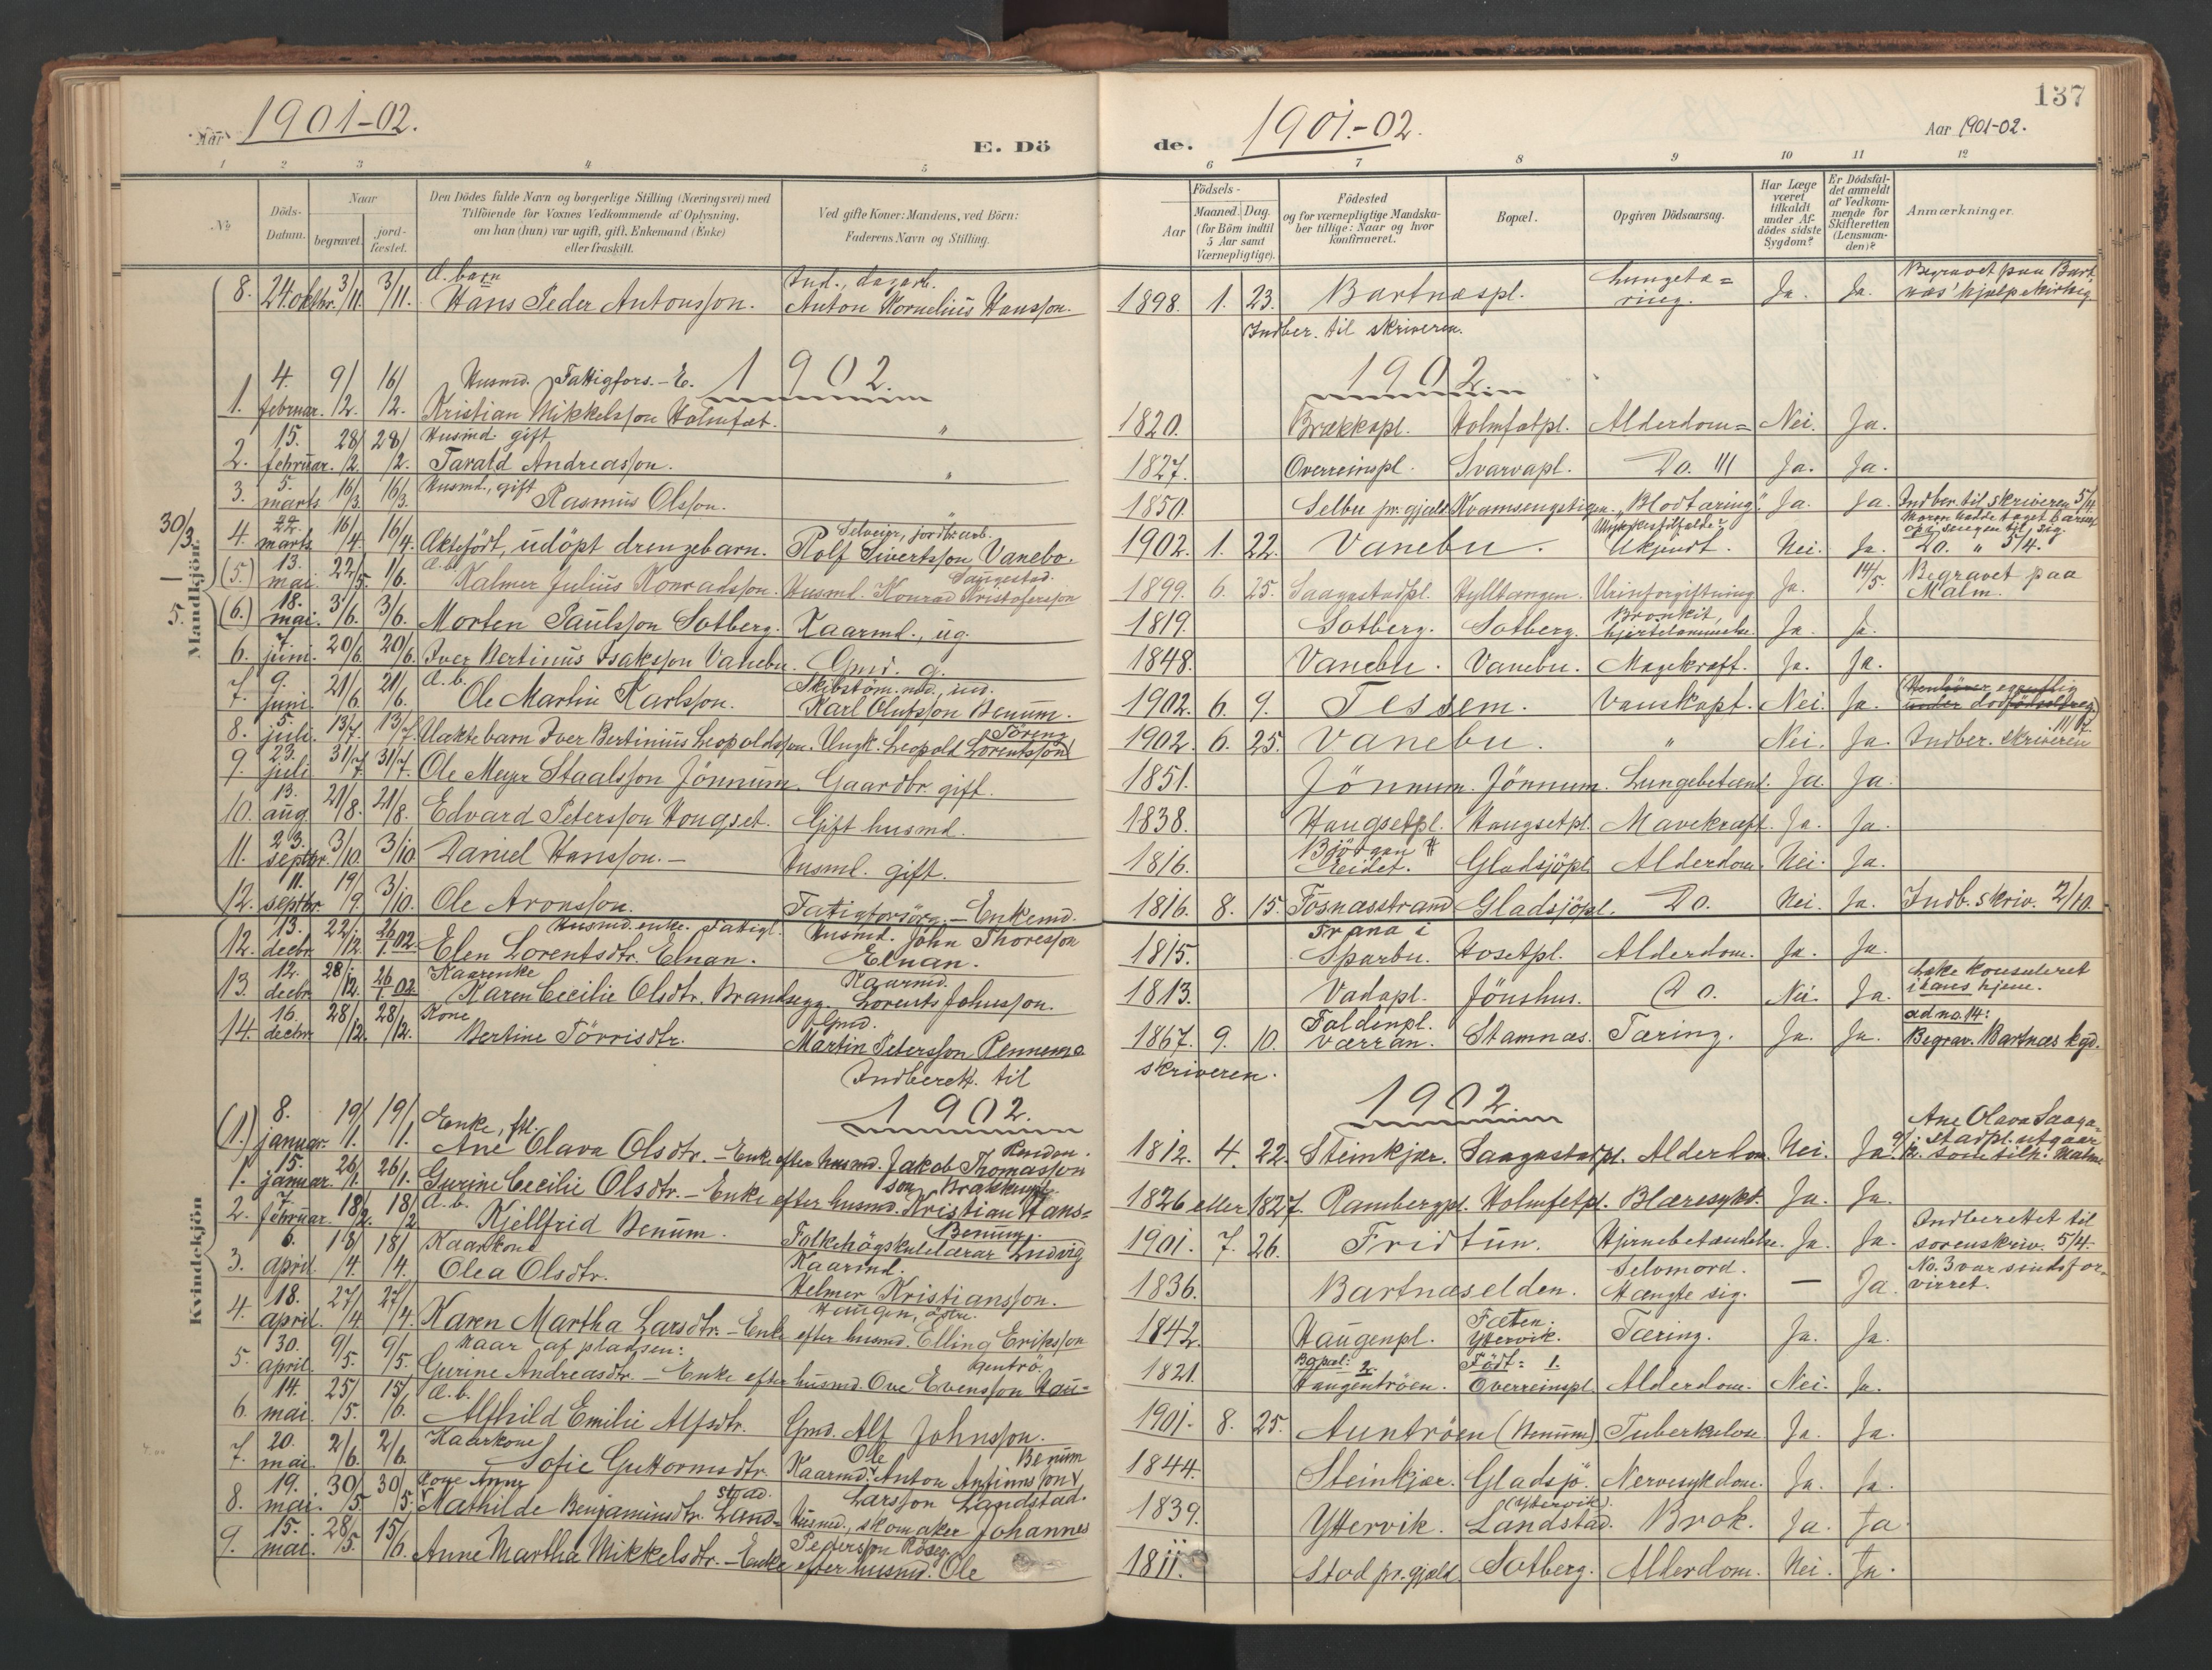 137
Aar 1901-02.
E. Dö
de.
1901-02.
Aar 1901-02.
1 2 3 4 5 6 7 8 9 10 11 12
No
Döds-Datum.
Naar
begravet.
jord-fæstet.
Den Dödes fulde Navn og borgerlige Stilling (Næringsvei) med
Tilföiende for Voxnes Vedkommende af Oplysning,
om han (hun) var ugift, gift, Enkemand (Enke)
eller fraskilt.
Ved gifte Koner: Mandens, ved Börn:
Faderens Navn og Stilling.
Födsels-
Aar
Maaned. Dag.
(for Börn indtil
5 Aar samt
Værnepligtige).
Födested
og for værnepligtige Mandska-
ber tillige: Naar og hvor
konfirmeret.
Bopæl.
Opgiven Dödsaarsag.
Har Læge
været
tilkaldt
under Af-
dödes sidste
Sygdom?
Er Dödsfal-
det anmeldt
af Vedkom-
mende for
Skifteretten
(Lensman-
den)?
Anmærkninger.
Mandkjön.
30/3
5.
8. 24. oktbr. 3/11. 3/11. Æ. barn Hans Peder Antonsson. Ind., dagarb. Anton Kornelius Hansson. 1898. 1. 23. Bartnæspl. Lungetæ=ring. Ja. Ja. Begravet paa Bart
næs' hjælpekirkeg.
Indber. til skriveren.
1902. 1902.
1. 4. februar. 9/2. 16/2. Husmd. Fattigfors. - E. Kristian Mikkelsson Holmfæt. " 1820. Brækkapl. Holmfætpl. Alderdom= Nei. Ja.
2. 15. februar. 28/2. 28/2. Husmd. gift Tarald Andreasson. " 1827. Overreinspl. Svarvapl. Do. Ja. Ja.
3. 5. marts. 16/3 16/3. Husmd., gift Rasmus Olsson. " 1850. Selbu pr.gjæld Kvamsengstigen. "Blodtæring". Ja. Ja. Indber. til skriveren 5/4
4. 22. marts. 16/4. 16/4. Æktefödt, udöpt drengebarn. Selveier, jordbr.arb. Rolf Sivertsson Vanebo. 1902. 1. 22. Vanebu. Ukjendt. Nei. Ja. Moren hadde taget barnet
op i sengen til sig.
Do. " 5/4.
(5.) 13. mai. 22/5. 1/6. Æ.b. Kalmer Julius Konradsson. Husml. Konrad Kristofersson Saugestad. 1899. 6. 25. Saagastadpl. Hylltangen. Urinforgiftning Ja. 14/5. Begravet paa
Malm.
(6.) 18. mai. 3/6. 3/6. Morten Paulsson Solberg. Kaarmd., ug. 1819. Solberg. Solberg. Bronkit, hjertelammelse. Ja. Ja.
6. 7. juni. 20/6. 20/6. Iver Bertinus Isaksson Vanebu. Gmd. g. 1848. Vanebu. Vanebu. Magekræft. Ja. Ja.
7. 9. juni. 21/6 21/6. Æ.b. Ole Martin Karlsson. Skibstöm.md., ind. Karl Olufsson Benum. 1902. 6. 9. Tessem. Vanskapt. Nei. Ja. (Henhörer egentlig
under dödfödselreg.)
8. 5. juli. 13/7. 13/7. Uækte barn Iver Bertinius Leopoldsson. Ungk. Leopold Lorentsson Töreng 1902. 6. 25. Vanebu. " Nei. Ja. Indber. skriveren 11/7.
9. 23. juli 31/7 31/7. Ole Meyer Staalsson Jönnum. Gaardbr. gift. 1851. Jönnum. Jönnum. Lungebetænd. Ja. Ja.
10. 13. aug. 21/8. 21/8. Edvard Petersson Hougset. Gift husmd. 1838. Haugsetpl. Haugsetpl. Mavekræft. Ja. Ja.
11. 23. septbr. 3/10. 3/10 Daniel Hansson. - Husml. gift. 1816. Björgan Reidet. Gladsjöpl. Alderdom. Nei. Ja.
12. 11. septbr. 19/9. 3/10. Ole Aronsson. Fatigforsörg. - Enkemd. 1816. 8. 15. Fosnæsstrand Gladsjöpl. Do. Nei. Ja. Indb. skriv. 2/10.
Kvindekjön
12. 13. decbr. 22/12. 26/1.02. Husmd. enke. Fattigl. Elen Lorentsdtr. Elnan. Husmd. John Thoresson Elnan. 1815. Frana i Sparbu. Hosetpl. Alderdom. Ja. Ja.
13. 12. decbr. 28/12. 26/1.02. Kaarenke Karen Cecilie Olsdtr. Brandsegg. Kaarmd. Lorents Johnsson. 1813. Vadapl. Jönshus. Do. Nei. Ja. Læke konsuleret
i hans hjem.
14. 16. decbr 28/12. 28/12. Kone Bertine Törrisdtr. Gmd. Martin Petersson Rennemo 1867. 9. 10. Faldenpl. Værran. Stamnæs. Tæring. Ja. Ja. ad no. 14:
Begrav. Bartnæs kgd.
Indberett. til skriveren.
1902. 1902.
(1.) 8. januar. 19/1. 19/1. Enke, ftl. Ane Olava Olsdtr. - Enke efter husmd. Jakob Thomasson 1812. 4. 22. Steinkjær. Saagastadpl. Alderdom. Nei. Ja. Ane Olava Saaga-
stadpl. utgaar
som tilh. Malm
1. 15. januar. 26/1. 26/1. Gurine Cecilie Olsdtr. - Enke efter husmd. Kristian Hans=
son Brækkenpl. 1826 eller 1827. Rambergpl. Holmfetpl. Blæresykd. Ja. Ja.
2. 7. februar. 18/2. 18/2 Æ.b. Kjellfrid Benum. Falkehögskulelærar Ludvig Benum. 1901. 7. 26. Fridtun. Hjernebetændelse. Ja. Ja. Indberettet til
sorenskriv. 5/4.
3. 6. april. 18/4. 18/4. Kaarkone Olea Olsdtr. Kaarmd. Helmer Kristiansson. 1836. Bartnæselden. Selvmord. Hængte sig. — Ja. No. 3 var sindsfor-
virret.
4. 18. april. 27/4 27/4. Karen Martha Larsdtr. - Enke efter husmd. Elling Eriksson Haugen, östre. 1842. Haugenpl. Fæten; Yttervik. Tæring. Ja. Ja.
5. 30. april. 9/5. 9/5. Kaar af pladsen: Gurine Andreasdtr. - Enke efter husmd. Ove Evensson Hau=
gentrö. 1821. Bopæl: 2. Haugentröen. Födt: 1. Overreinspl. Alderdom. Nei. Ja.
6. 14. mai. 25/5. 15/6. Æ.b. Alfhild Emilie Alfsdtr. Gmd. Alf Johnsson. 1901. 8. 25. Auntröen (Benum) Tuberkulose Ja. Ja.
7. 20. mai 2/6. 2/6. Kaarkone Sofie Guttormsdtr. Kaarmd. Ole Anton Antinusson Benum 1844. Steinkjær. Gladsjö. Nervesykdom. Ja. Ja.
8. 19. mai. 30/5 30/5. Kone Anne Mathilde Benjaminsdtr. Land=
stad. Larsson Landstad. Husmd., skomaker Johannes 1839. Yttervik. (Yttervik). Landstad. Brok. Ja. Ja.
9. 15. mai. 28/5. 15/6. Anne Martha Mikkelsdtr. - Enke efter husmd. Ole Pedersson 1811. Stod pr.gjæld. Solberg. Alderdom. Nei. Ja.